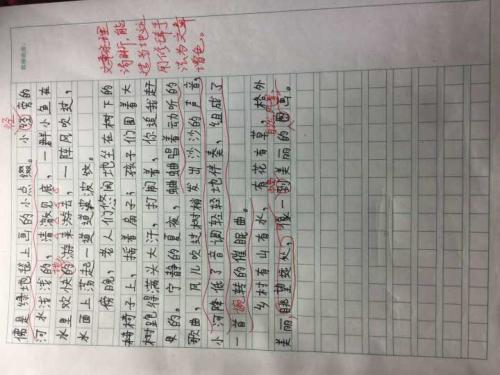 佛是绿地毯上画的小点缀。小轻旁的
河水浅浅的，清澈见底，一群小鱼在
水里欢快的游来游去，一阵风吹过，
水面上荡起一道道波纹。
傍晚，老人们悠闲地坐在树下的
椅子上，摇着扇子，孩子们围着大
树跑得满头大汗，打闹着，你追我赶
的。宁静的夏夜，蛐蛐唱着动听的
歌曲，风儿吹过树梢发出沙沙的声音，
小河降低了音调轻轻地伴奏，组成了
一首婉转的催眠曲。
乡村有山有水，有花有草，格外
美丽，眺望远处，像一到美丽的图画。
文章条理
清晰，能
适当地运
用修辞手
法为文章
增色。